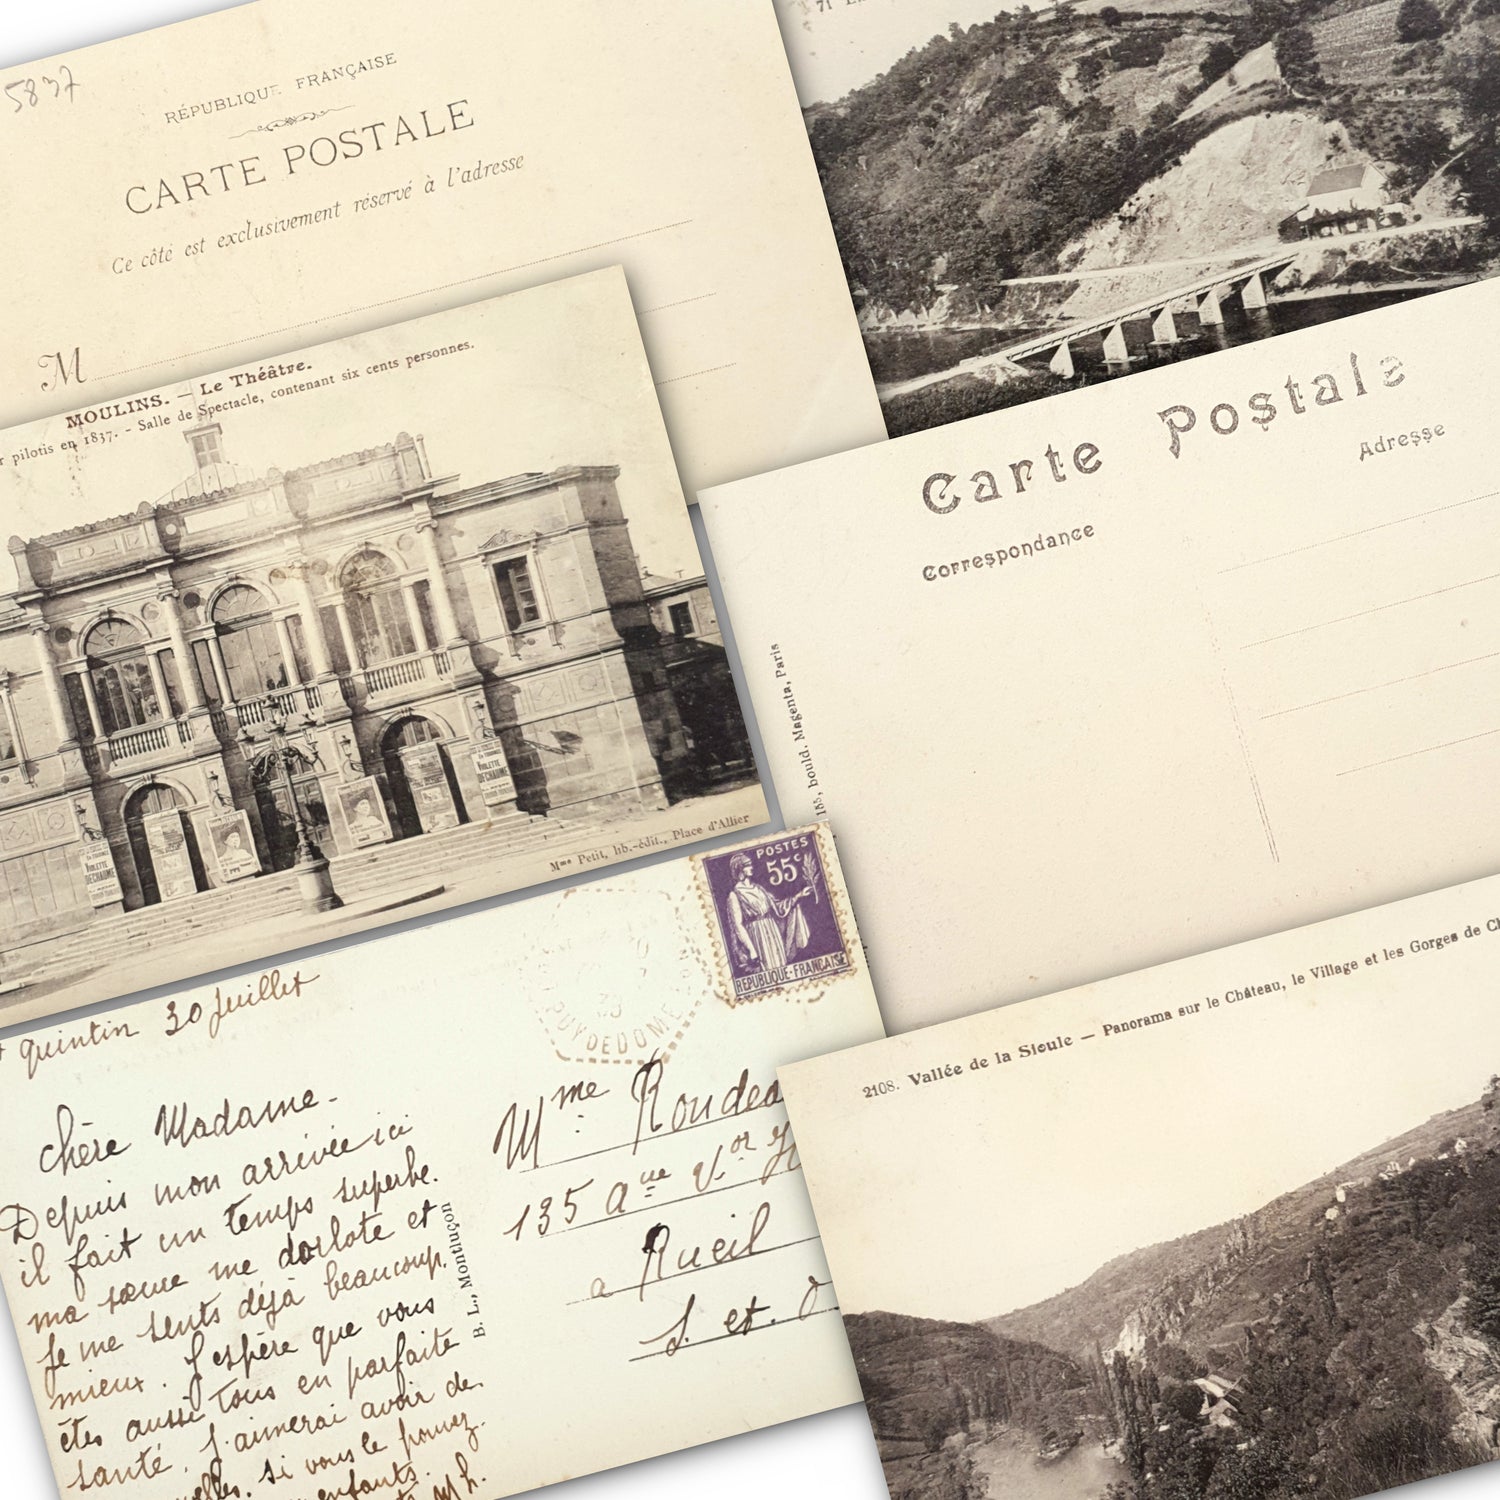 5837
RÉPUBLIQUE FRANÇAISE
CARTE POSTALE
Ce côté est exclusivement réservé à l'adresse
M
71
MOULINS. — Le Théâtre.
pilotis en 1837. - Salle de Spectacle, contenant six cents personnes.
VIOLETTE
DÉCHAUME
VIOLETTE
DÉCHAUME
Mme Petit, lib.-édit., Place d'Allier
Carte Postale
Correspondance
Adresse
bould. Magenta, Paris
POSTES
55c
REPUBLIQUE-FRANÇAISE
PUY DE DOME
quintin 30 Juillet
chère Madame.
Depuis mon arrivée ici
il fait un temps superbe.
ma sœur me dorlote et
je me sents déjà beaucoup
mieux. J'espère que vous
êtes aussi tous en parfaite
santé. J'aimerai avoir de
si vous le pouvez.
enfants.
B. L., Montluçon
Mme
135 Aue Vor
a Rueil
S. et. O
2108. Vallée de la Sioule — Panorama sur le Château, le Village et les Gorges de